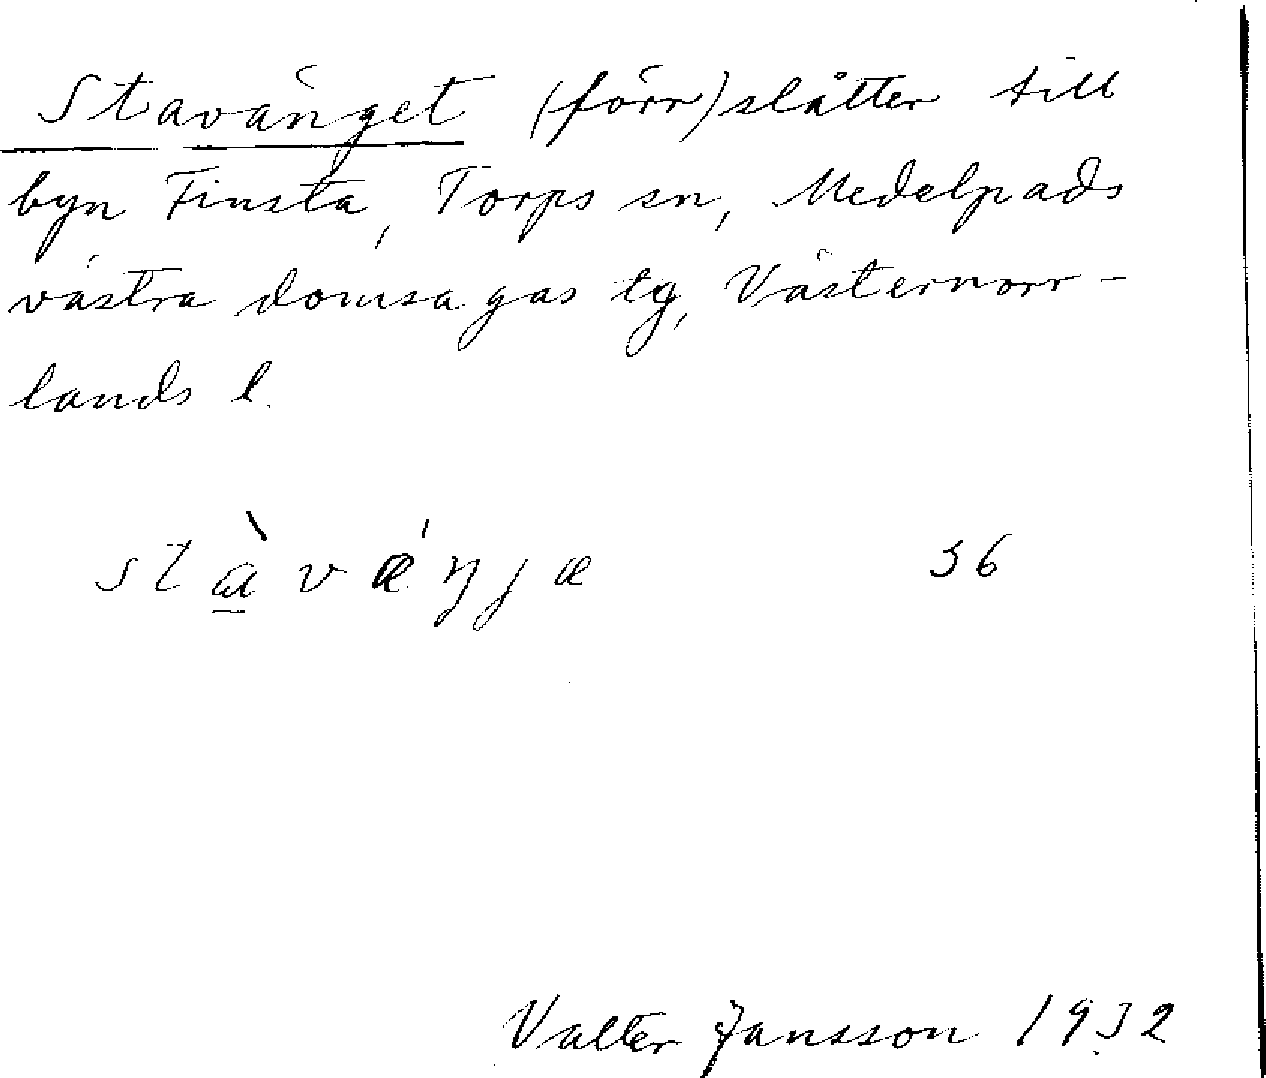 Stavänget (förr) slåtter till
byn Finsta, Torps sn, Medelpads
västra domsagas tg, Västernorr-
lands l.
stàvǽŋjæ 36
Valter Jansson 1932